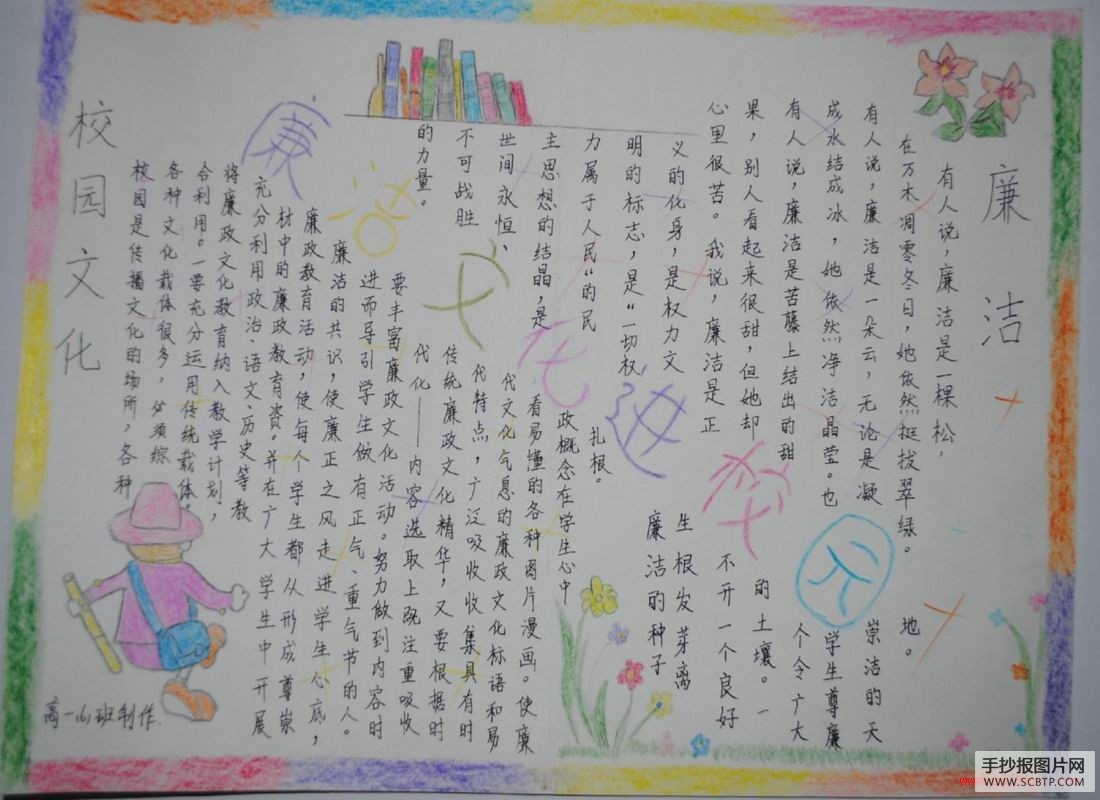 廉洁
有人说,廉洁是一棵松,
在万木凋零冬日,她依然挺拔翠绿。
有人说,廉洁是一朵云,无论是凝
成水结成冰,她依然净洁晶莹。也
有人说,廉洁是苦藤上结出的甜
果,别人看起来很甜,但她却
心里很苦。我说,廉洁是正
义的化身,是权力文
明的标志,是“一切权
力属于人民“的民
主思想的结晶,是
世间永恒、
不可战胜
的力量。
廉洁文化进校园
校园文化
校园是传播文化的场所,各种
各种文化载体很多,必须综
合利用。一要充分运用传统载体。
将廉政文化教育纳入教学计划,
充分利用政治、语文、历史等教
材中的廉政教育资。并在广大学生中开展
廉政教育活动,使每个学生都从形成尊崇
廉洁的共识,使廉正之风走进学生心底,
进而导引学生做有正气、重气节的人。
要丰富廉政文化活动。努力做到内容时
代化——内容选取上既注重吸收
传统廉政文化精华,又要根据时
代特点,广泛吸收收集具有时
代文化气息的廉政文化标语和易
看易懂的各种图片漫画。使廉
政概念在学生心中
扎根。
廉洁的种子
生根发芽离
不开一个良好
的土壤。一
个令广大
学生尊廉
崇洁的天
地。
高一(6)班制作
手抄报图片网
WWW.SCBTP.COM